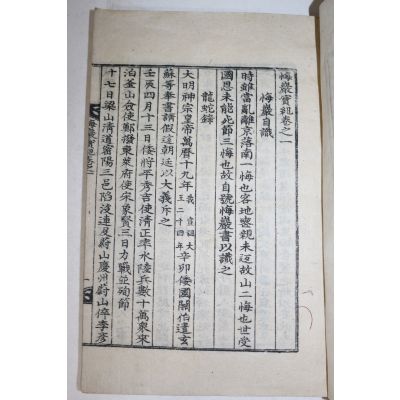 悔巖實紀卷之一
悔巖自識
時雖當亂離京落南一悔也客地喪親未返故山二悔也世受
國恩未能死節三悔也故自號悔巖書以識之
龍蛇錄
大明神宗皇帝萬曆十九年我宣祖大王二十四年辛卯倭國關伯遣玄
蘇等奉書請假道朝廷以大義斥之
壬辰四月十三日倭將平秀吉使淸正率水陸兵數十萬衆來
泊釜山僉使鄭撥東萊府使宋象賢三日力戰並殉節
十七日梁山淸道密陽三邑陷沒連及蔚山慶州蔚山倅李彥